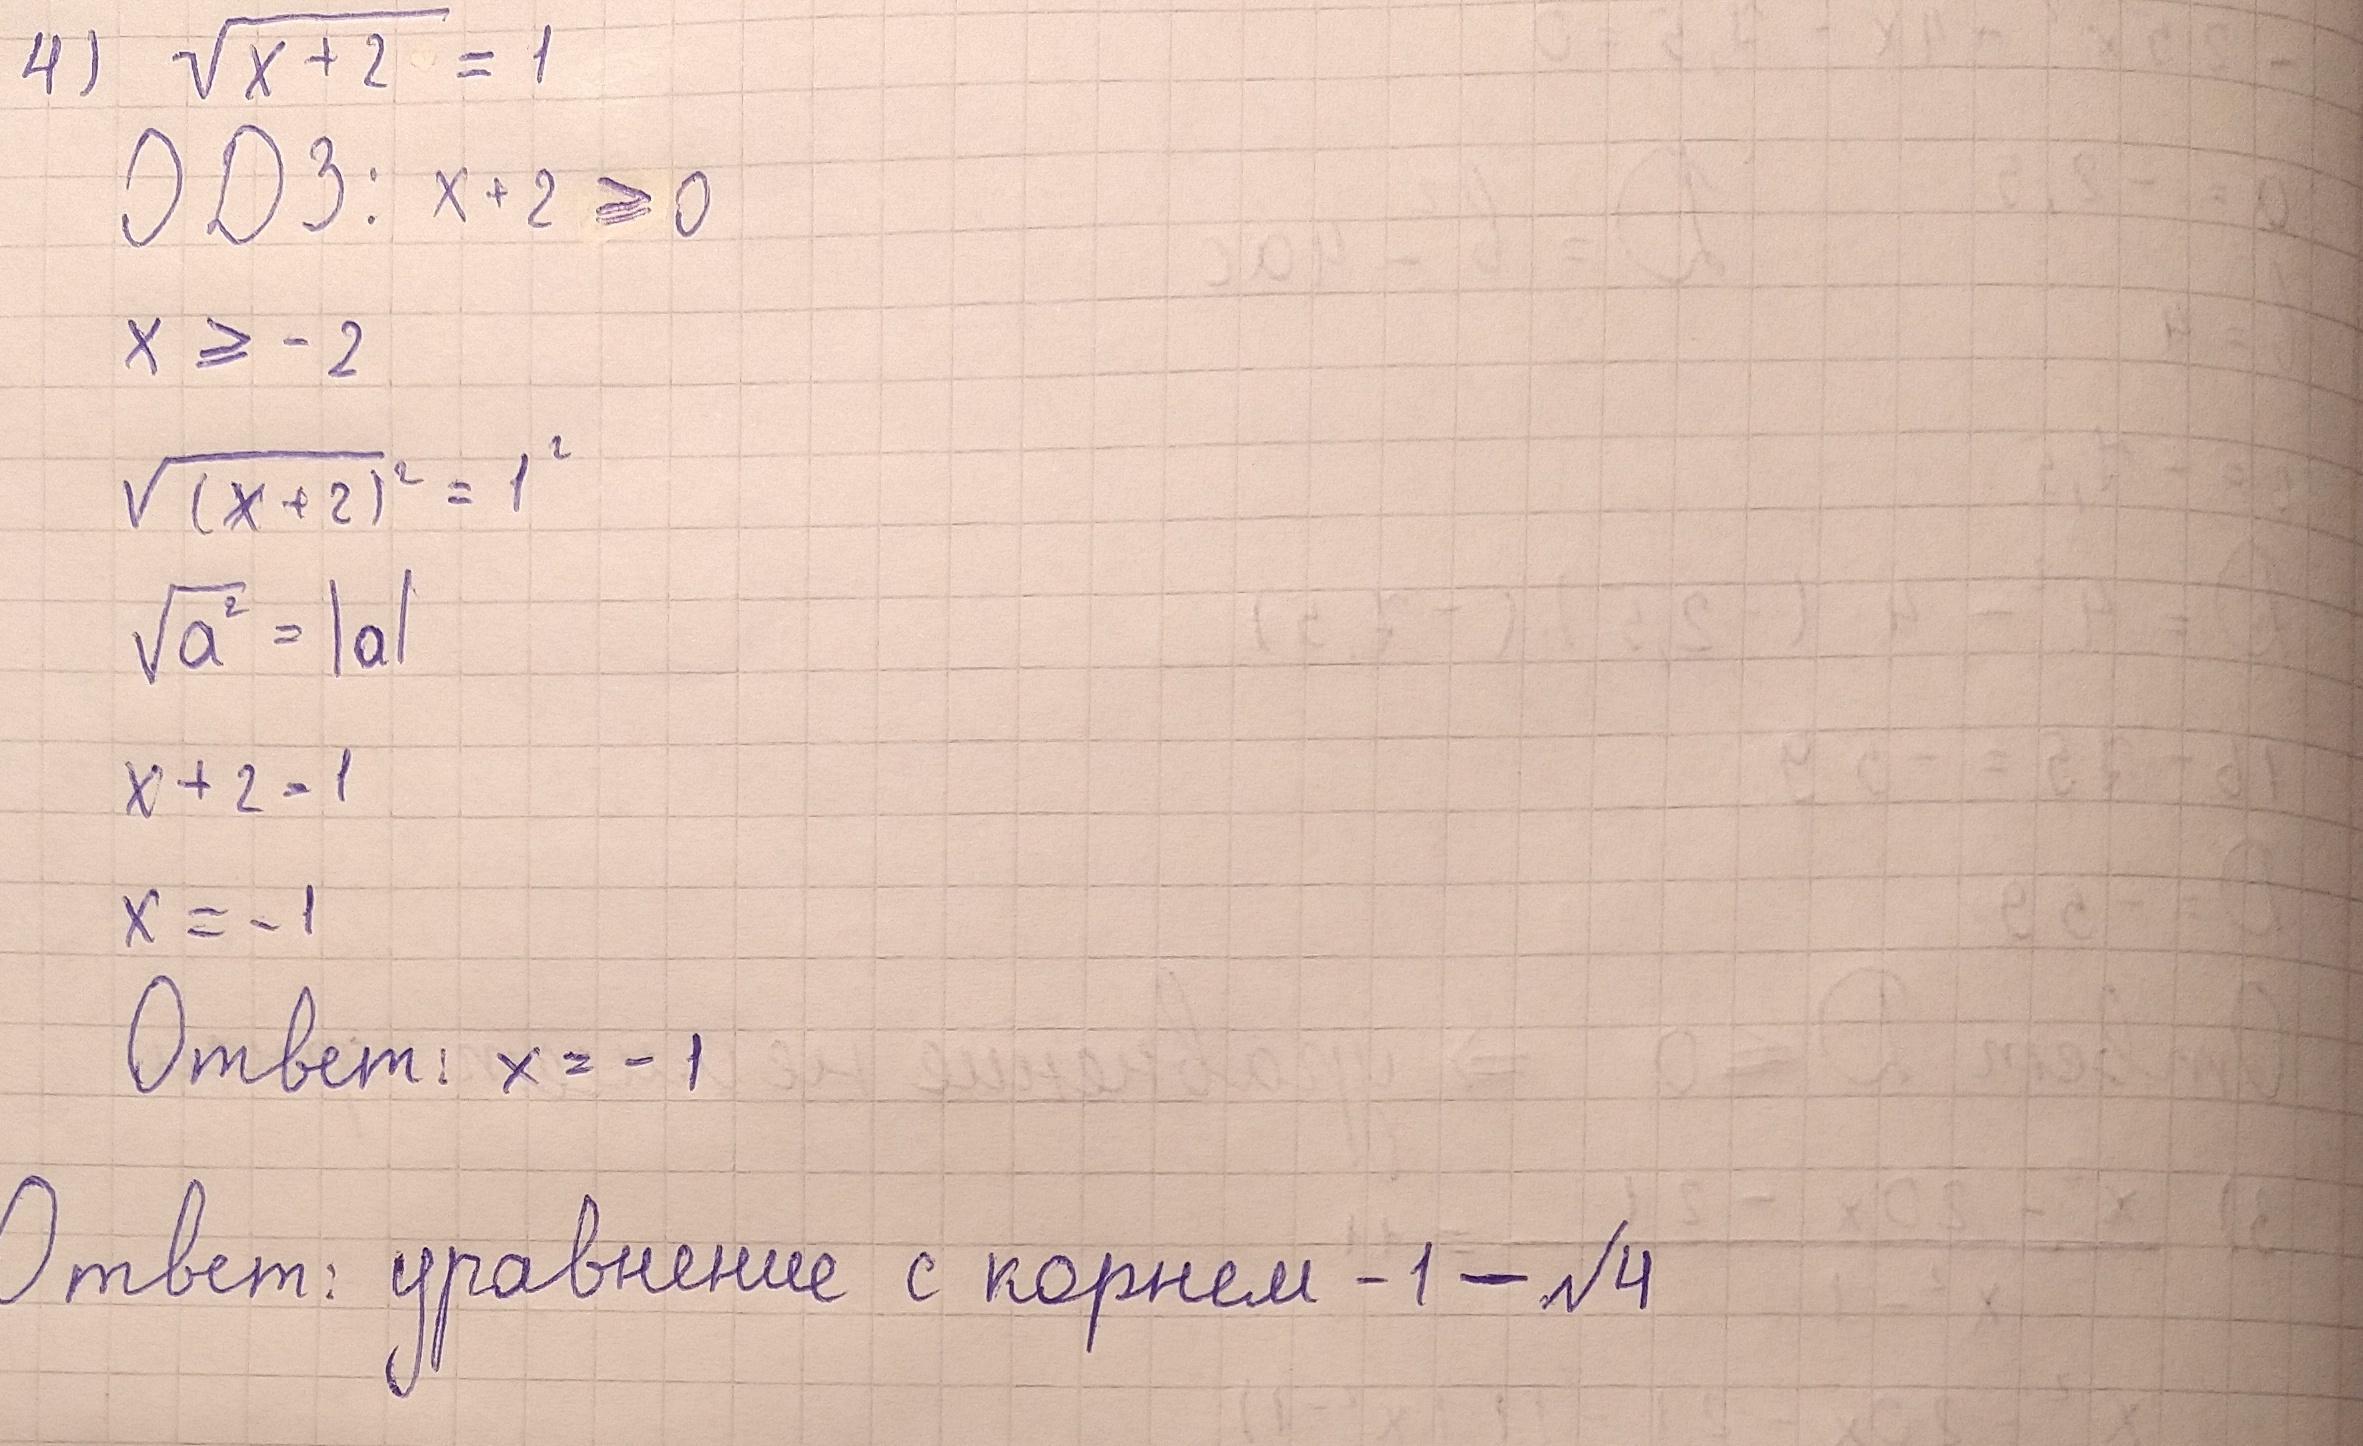 4) √(x+2) = 1
ОДЗ: x+2 ⩾ 0
x ⩾ -2
√(x+2)² = 1²
√a² = |a|
x+2=1
x = -1
Ответ: x = -1
Ответ: уравнение с корнем -1 — №4